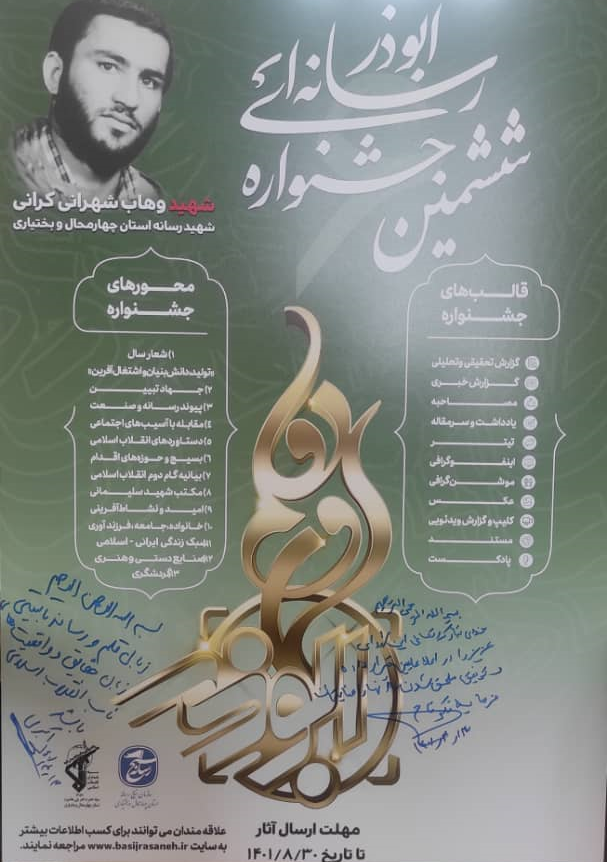 ششمین
جشنواره
رسانه‌ای
ابوذر
شهید وهاب شهرانی کرانی
شهید رسانه استان چهارمحال و بختیاری
قالب‌های
جشنواره
گزارش تحقیقی و تحلیلی
گزارش خبری
مصاحبه
یادداشت و سرمقاله
تیتر
اینفوگرافی
موشن‌گرافی
عکس
کلیپ و گزارش ویدئویی
مستند
پادکست
محورهای
جشنواره
۱) شعار سال
«تولید، دانش‌بنیان و اشتغال‌آفرین»
۲) جهاد تبیین
۳) پیوند رسانه و صنعت
۴) مقابله با آسیب‌های اجتماعی
۵) دستاوردهای انقلاب اسلامی
۶) بسیج و حوزه‌های اقدام
۷) بیانیه گام دوم انقلاب اسلامی
۸) مکتب شهید سلیمانی
۹) امید و نشاط‌آفرینی
۱۰) خانواده، جامعه، فرزندآوری
۱۱) سبک زندگی ایرانی - اسلامی
۱۲) صنایع دستی و هنری
۱۳) گردشگری
ابوذر
بسم الله الرحمن الرحیم
بسم الله الرحمن الرحیم
زبان قلم و رسانه
انقلاب اسلامی
مهلت ارسال آثار
تا تاریخ ۱۴۰۱/۸/۳۰
علاقه مندان می توانند برای کسب اطلاعات بیشتر
به سایت www.basijrasaneh.ir مراجعه نمایند.